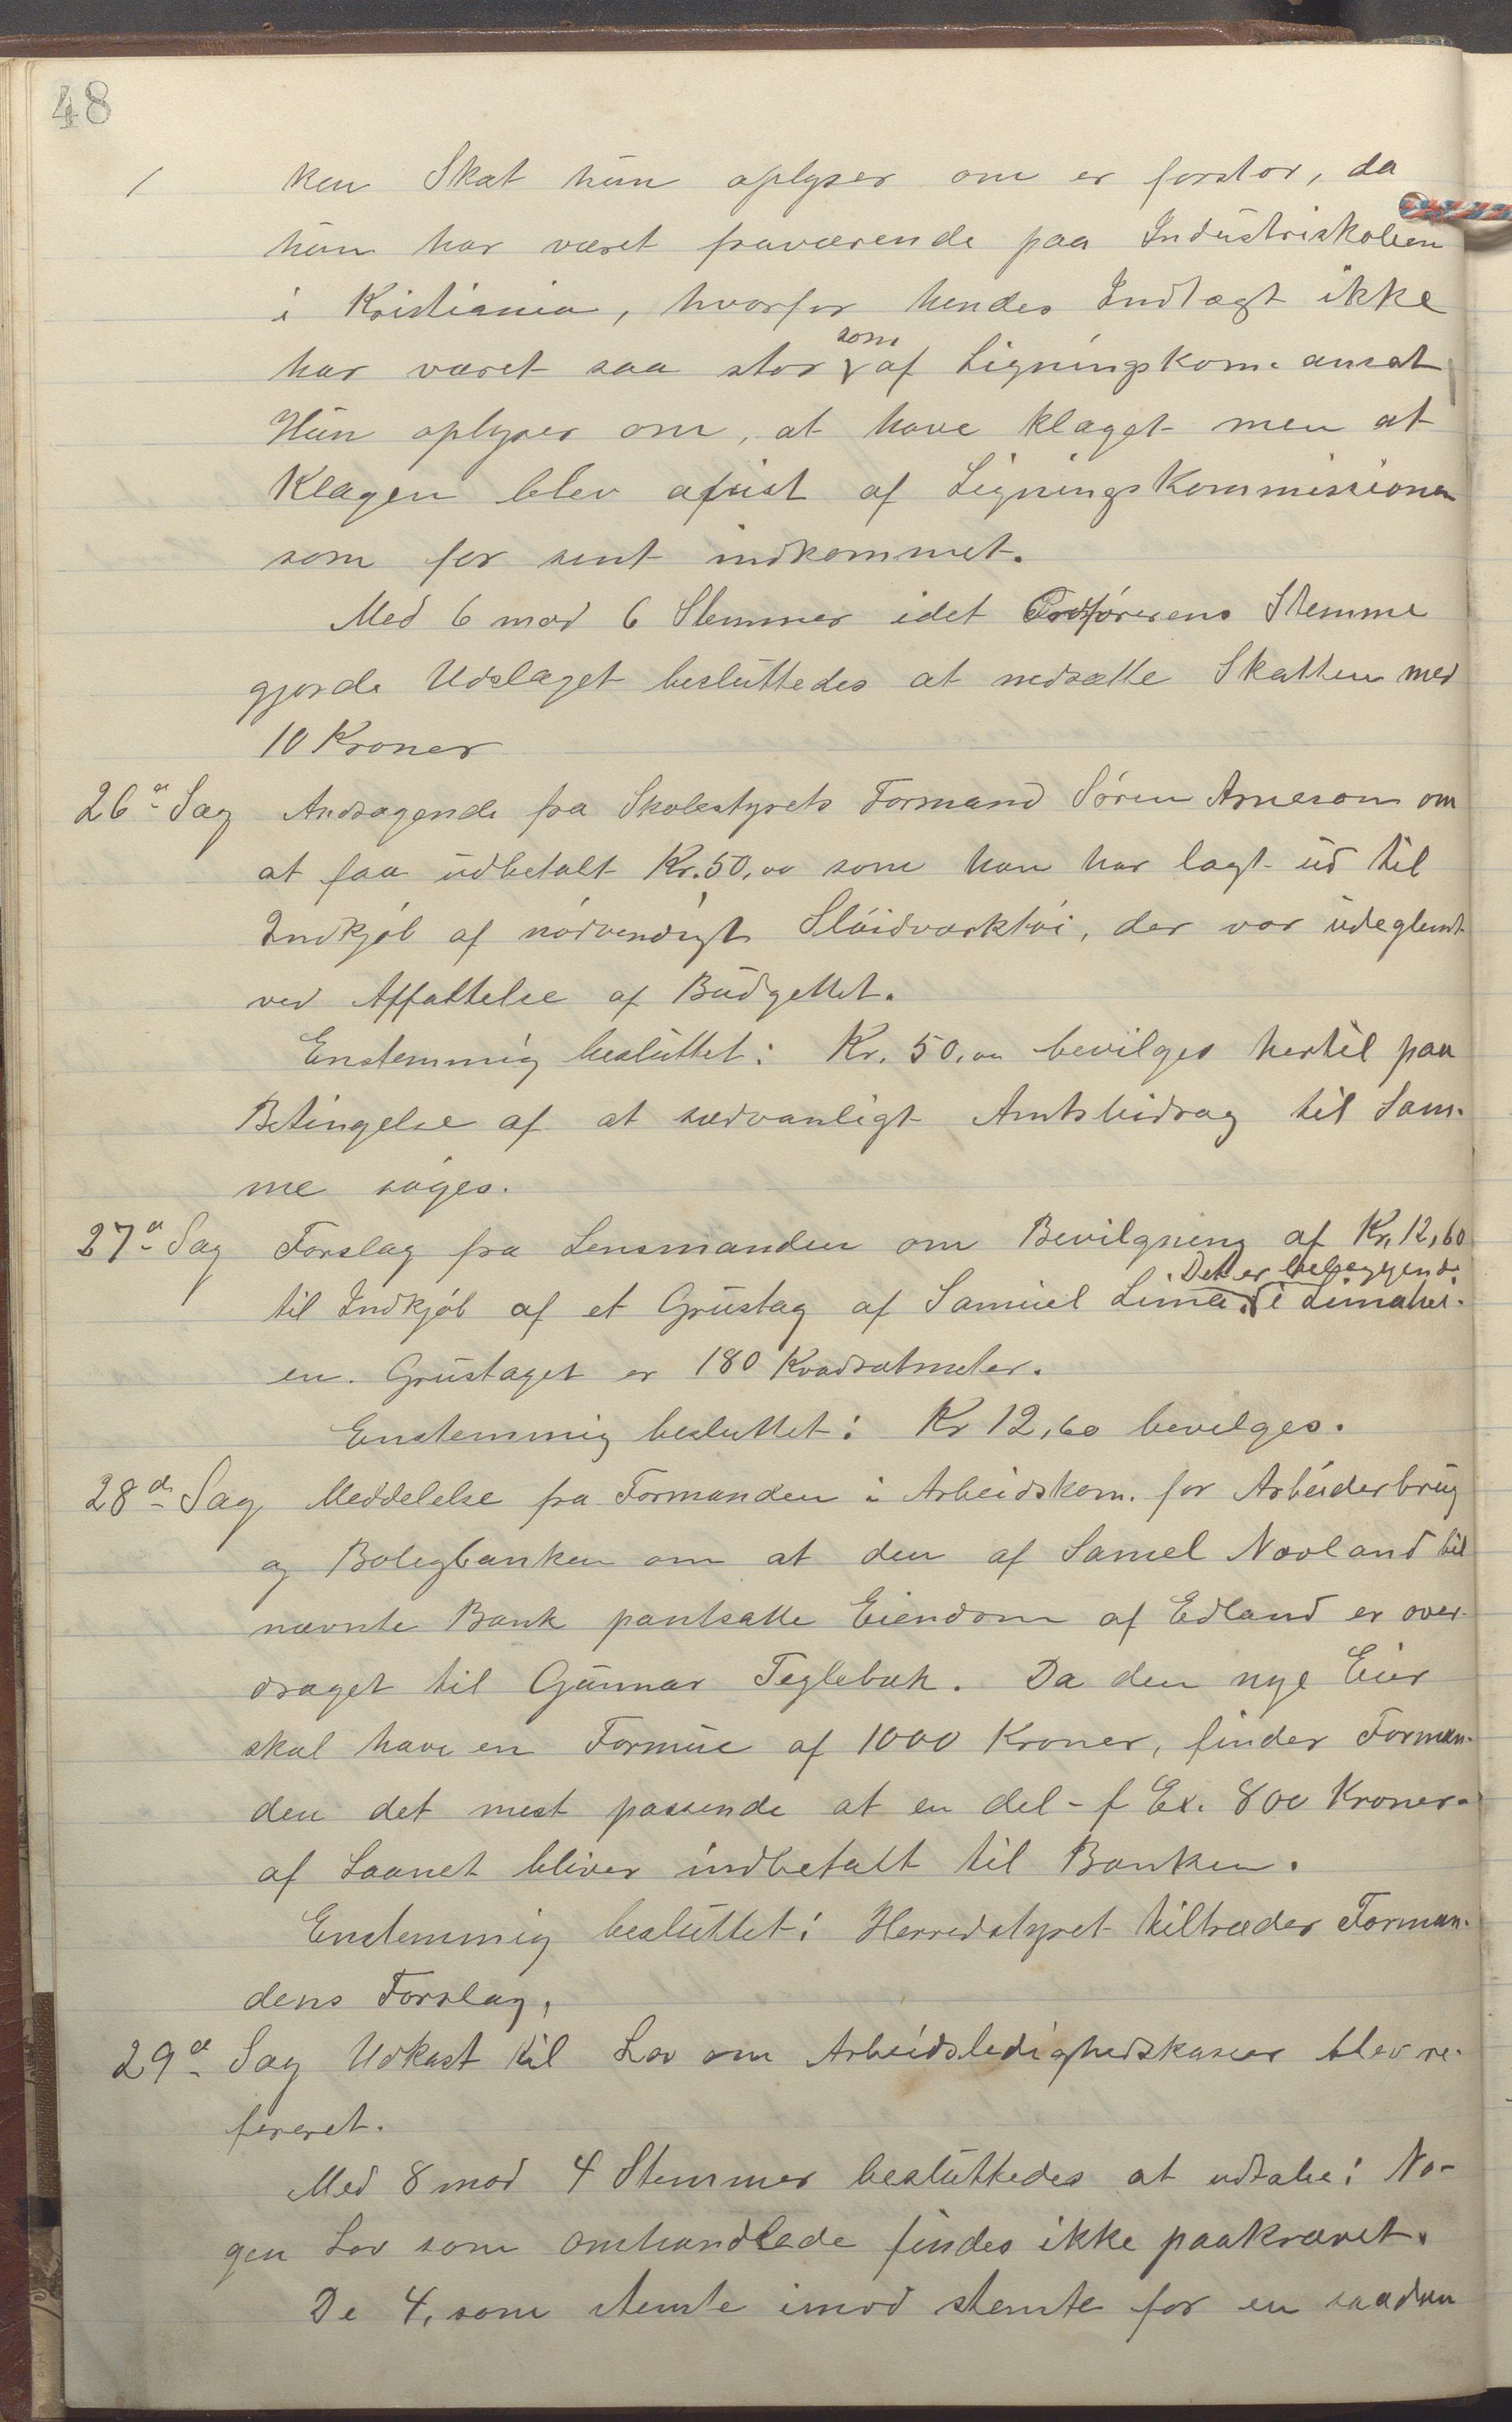 48
/ ken Skat hun oplyser om er forstor, da
hun har været fraværende paa Industriskolen
i Kristiania, hvorfor hendes Indtægt ikke
som
har været saa stor af Ligningskom. ansat
Hun oplyser om, at have klaget men at
Klagen blev afvist af Ligningskommissionen
som for sent indkommet.
Med 6 mod 6 Stemmer idet Ordførerens Stemme
gjorde Udslaget besluttedes at nedsætte Skatten med
10 Kroner
26de Sag Andragende fra Skolestyrets Formand Søren Arneson om
at faa udbetalt Kr. 50,00 som han har lagt ud til
Indkjøb af nødvendigt Sløidværktøi, der var udeglemt
ved Affattelse af Budgettet.
Enstemmig besluttet: Kr. 50,00 bevilges hertil paa
Betingelse af at sædvanligt Amtsbidrag til Sam-
me søges.
27de Sag Forslag fra Lensmanden om Bevilgning af Kr. 12,60
Det er beliggende
til Indkjøb af et Grustag af Samuel Lima. i Limahei-
en. Grustaget er 180 Kvadratmeter.
Enstemmig besluttet: Kr 12,60 bevilges.
28de Sag Meddelelse fra Formanden i Arbeidskom. for Arbeiderbrug
og Boligbanken om at den af Samel Navland til
nævnte Bank pantsatte Eiendom af Edland er over-
draget til Gunnar Teglebak. Da den nye Eier
skal have en Formue af 1000 Kroner, finder Forman-
den det mest passende at en del - f Ex. 800 Kroner -
af Laanet bliver indbetalt til Banken.
Enstemmig besluttet: Herredstyret tiltræder Forman-
dens Forslag.
29de Sag Udkast til Lov om Arbeidsledighedskasser blev re-
fereret.
Med 8 mod 4 Stemmer besluttedes at udtale: No-
gen Lov som omhandlede findes ikke paakrævet.
De 4, som stemte imod stemte for en saadan